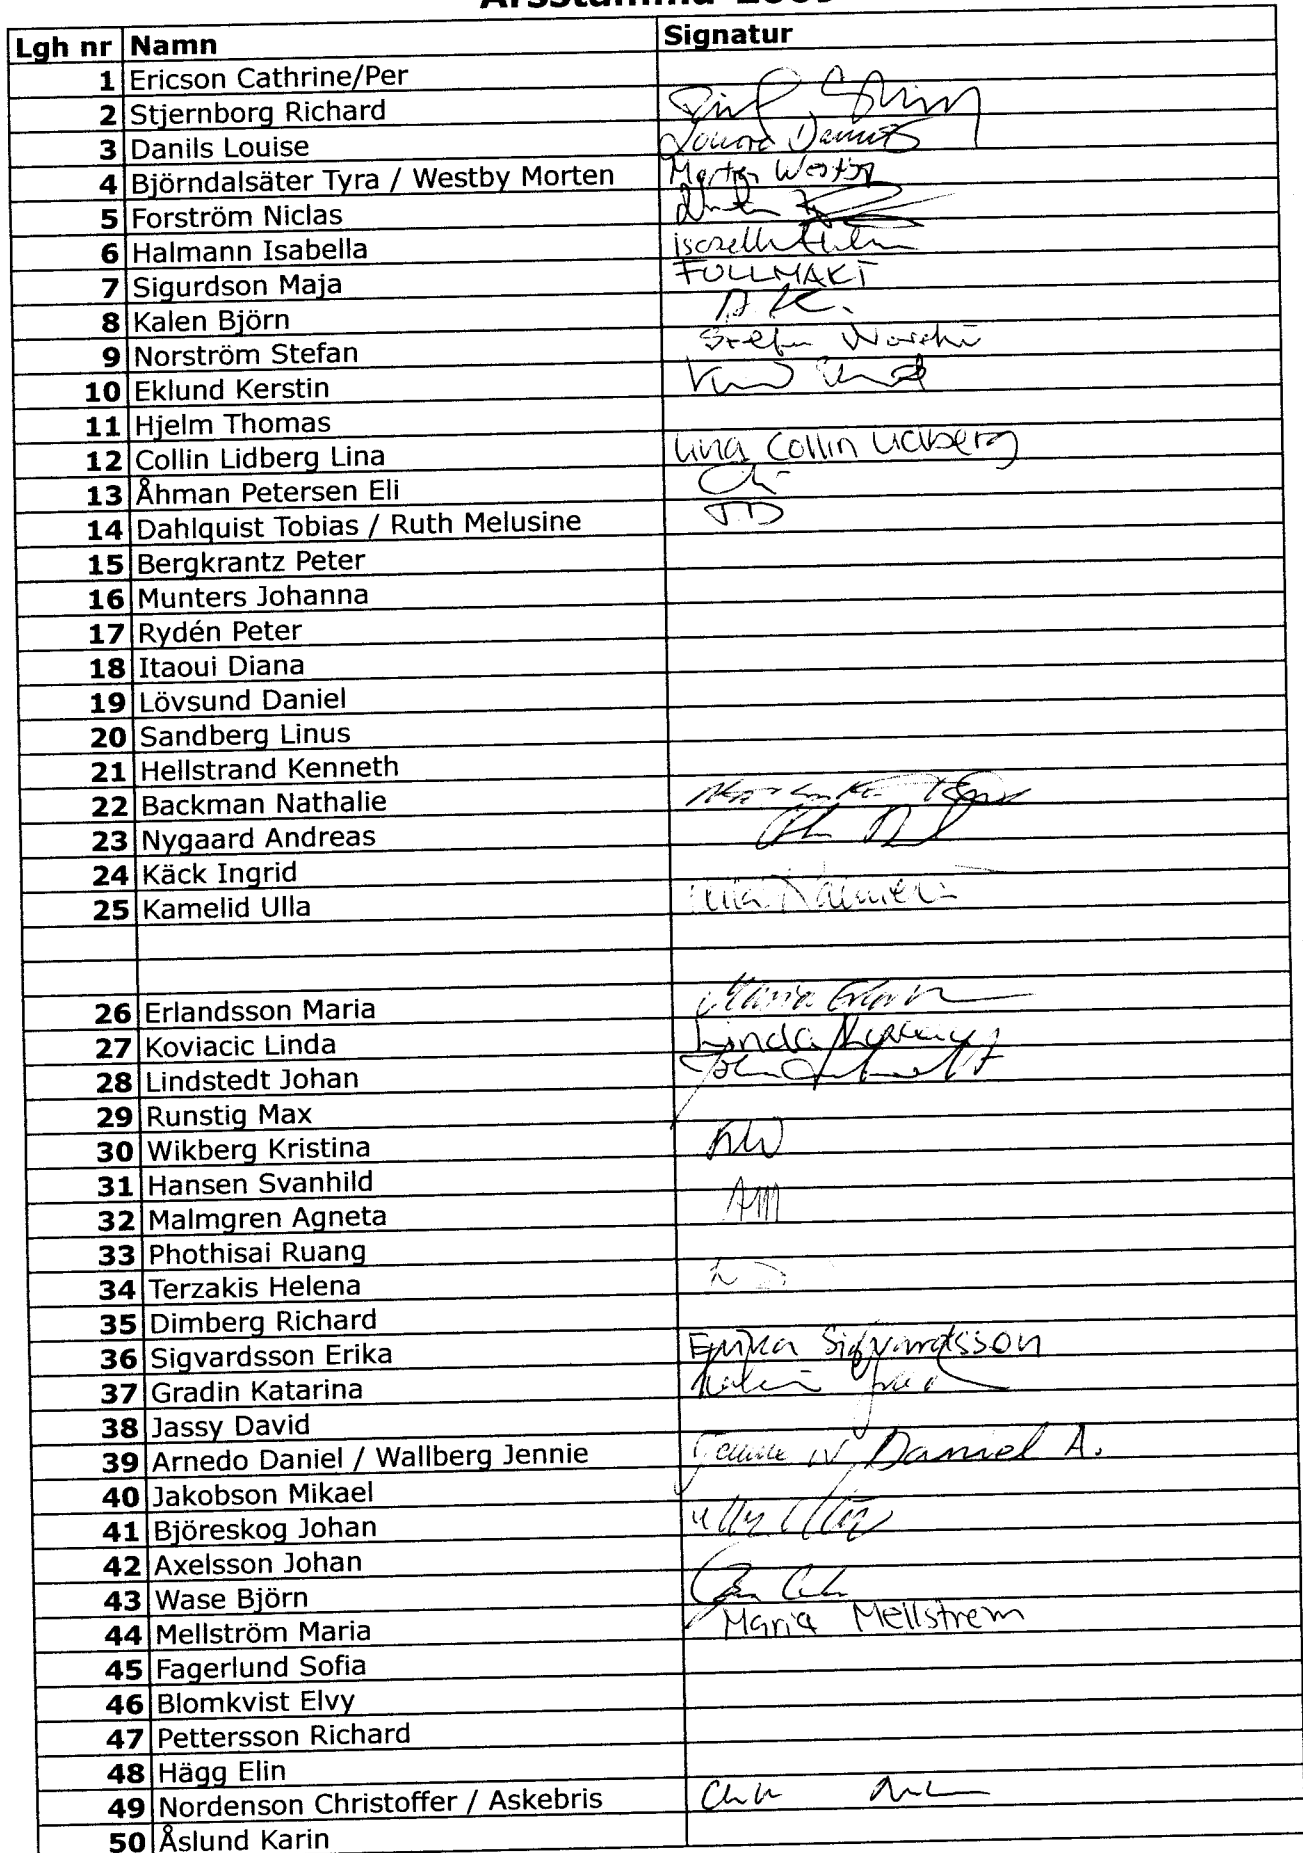 Lgh nr Namn Signatur
1 Ericson Cathrine/Per
2 Stjernborg Richard
3 Danils Louise
4 Björndalsäter Tyra / Westby Morten Morten Westby
5 Forström Niclas
6 Halmann Isabella
7 Sigurdson Maja FULLMAKT
8 Kalen Björn
9 Norström Stefan
10 Eklund Kerstin
11 Hjelm Thomas
12 Collin Lidberg Lina Lina Collin Lidberg
13 Åhman Petersen Eli
14 Dahlquist Tobias / Ruth Melusine TD
15 Bergkrantz Peter
16 Munters Johanna
17 Rydén Peter
18 Itaoui Diana
19 Lövsund Daniel
20 Sandberg Linus
21 Hellstrand Kenneth
22 Backman Nathalie
23 Nygaard Andreas
24 Käck Ingrid
25 Kamelid Ulla
26 Erlandsson Maria Maria
27 Koviacic Linda Linda
28 Lindstedt Johan
29 Runstig Max
30 Wikberg Kristina KW
31 Hansen Svanhild
32 Malmgren Agneta AM
33 Phothisai Ruang
34 Terzakis Helena
35 Dimberg Richard
36 Sigvardsson Erika Erika Sigvardsson
37 Gradin Katarina
38 Jassy David
39 Arnedo Daniel / Wallberg Jennie Jennie W Daniel A.
40 Jakobson Mikael
41 Björeskog Johan
42 Axelsson Johan
43 Wase Björn
44 Mellström Maria Maria Mellström
45 Fagerlund Sofia
46 Blomkvist Elvy
47 Pettersson Richard
48 Hägg Elin
49 Nordenson Christoffer / Askebris
50 Åslund Karin